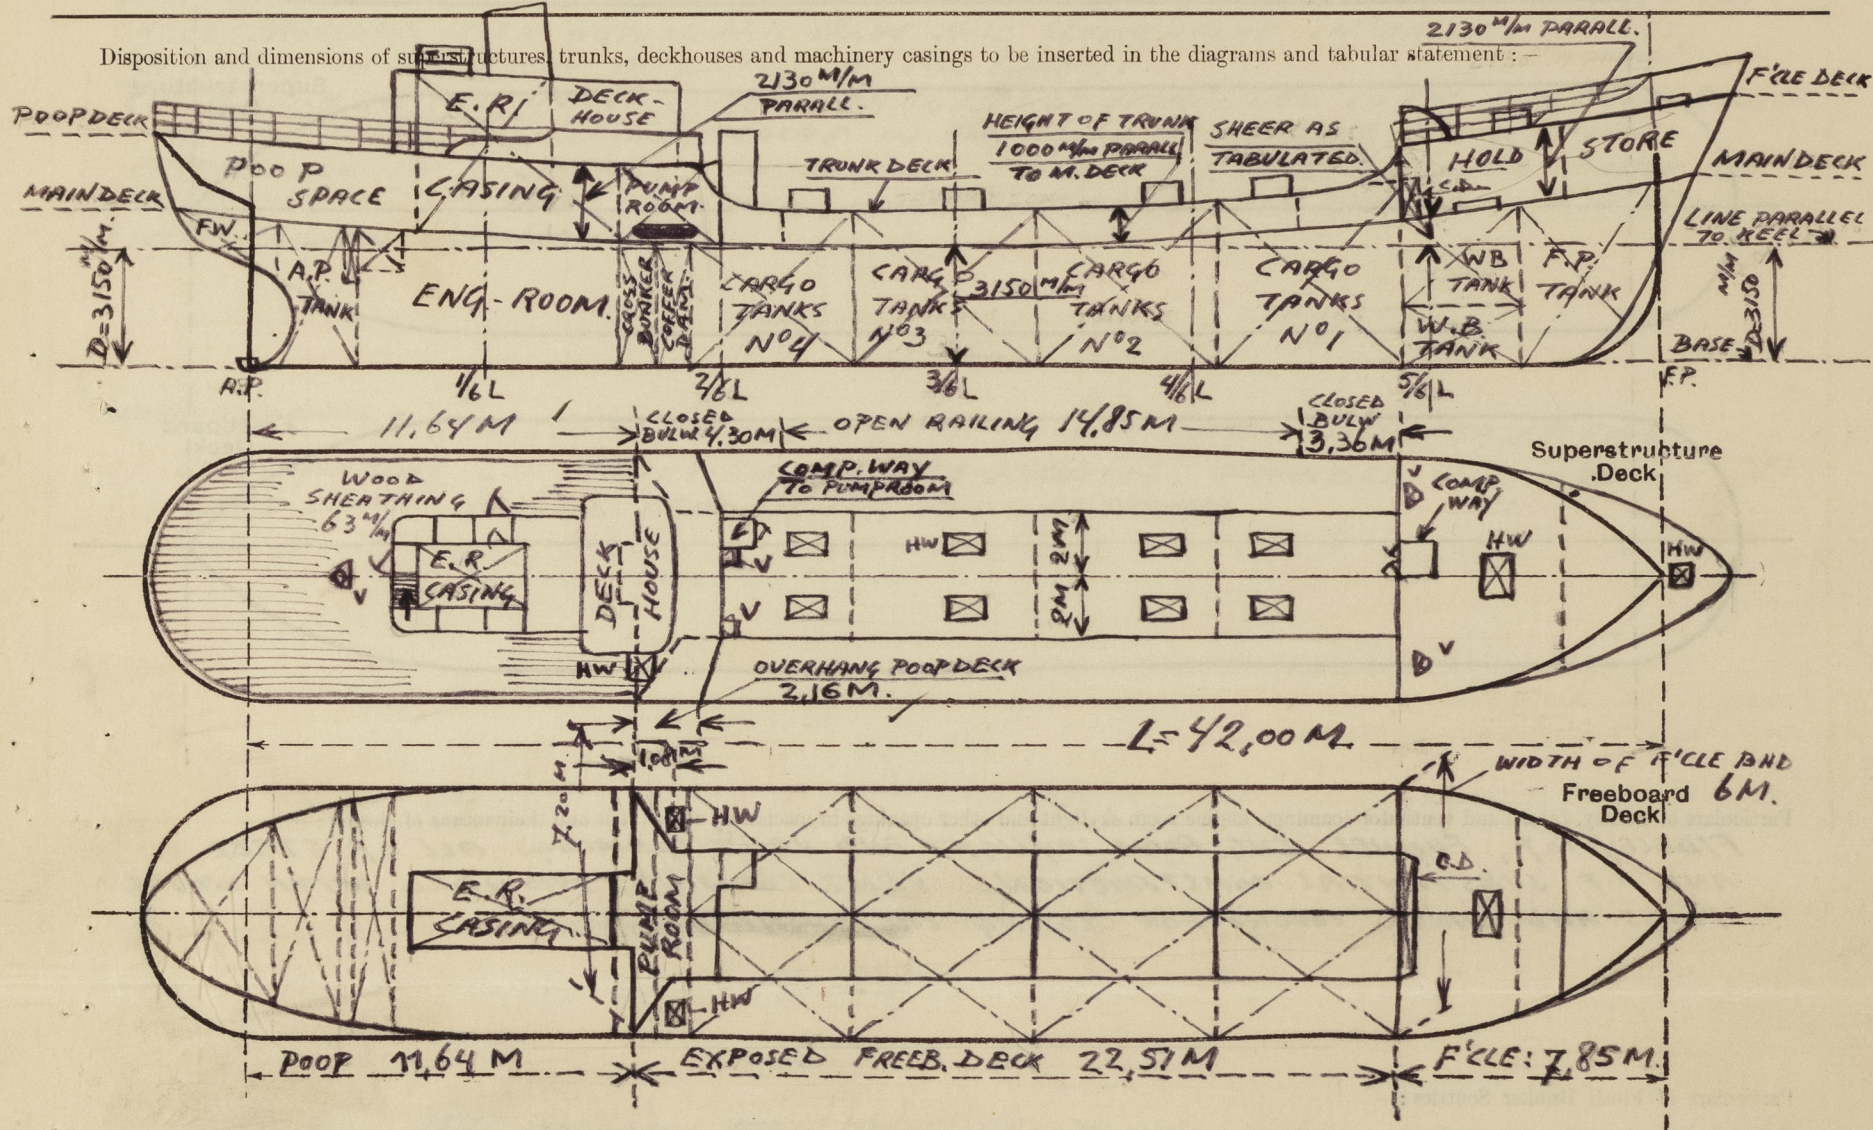 Disposition and dimensions of superstructures, trunks, deckhouses and machinery casings to be inserted in the diagrams and tabular statement :—
2130 M/M PARALL.
POOPDECK
E.R.
DECK-
HOUSE
2130 M/M
PARALL.
HEIGHT OF TRUNK
1000 M/M PARALL
TO M. DECK
SHEER AS
TABULATED.
F'CLE DECK
POOP
SPACE
CASING
PUMP
ROOM.
TRUNKDECK
HOLD
STORE
C.D.
MAINDECK
MAINDECK
FW.
LINE PARALLEL
TO KEEL
D=3150 M/M.
A.P.
TANK
ENG-ROOM.
CROSS
BUNKER
COFFER
DAM.
CARGO
TANKS
Nº4
CARGO
TANKS
Nº3
3150 M/M
CARGO
TANKS
Nº2
CARGO
TANKS
Nº1
WB
TANK
W.B
TANK
F.P.
TANK
D=3150 M/M
BASE
A.P.
1/6 L
2/6 L
3/6 L
4/6 L
5/6 L
F.P.
11,64 M
CLOSED
BULW 4.30M
OPEN RAILING 14,85M
CLOSED
BULW
3,36M
Superstructure
Deck
WOOD
SHEATHING
63 M/M
COMP. WAY
TO PUMPROOM
V
COMP.
WAY
E.R.
CASING
V
DECK
HOUSE
V
HW
2M
2M
HW
HW
V
V
HW
OVERHANG POOPDECK
2,16M.
L=42,00M.
1.08M
7.20M
WIDTH OF F'CLE BHD
6M.
Freeboard
Deck
HW
E.R.
CASING
PUMP
ROOM
C.D.
HW
POOP 11,64 M
EXPOSED FREEB. DECK 22,51M
F'CLE: 7,85M.